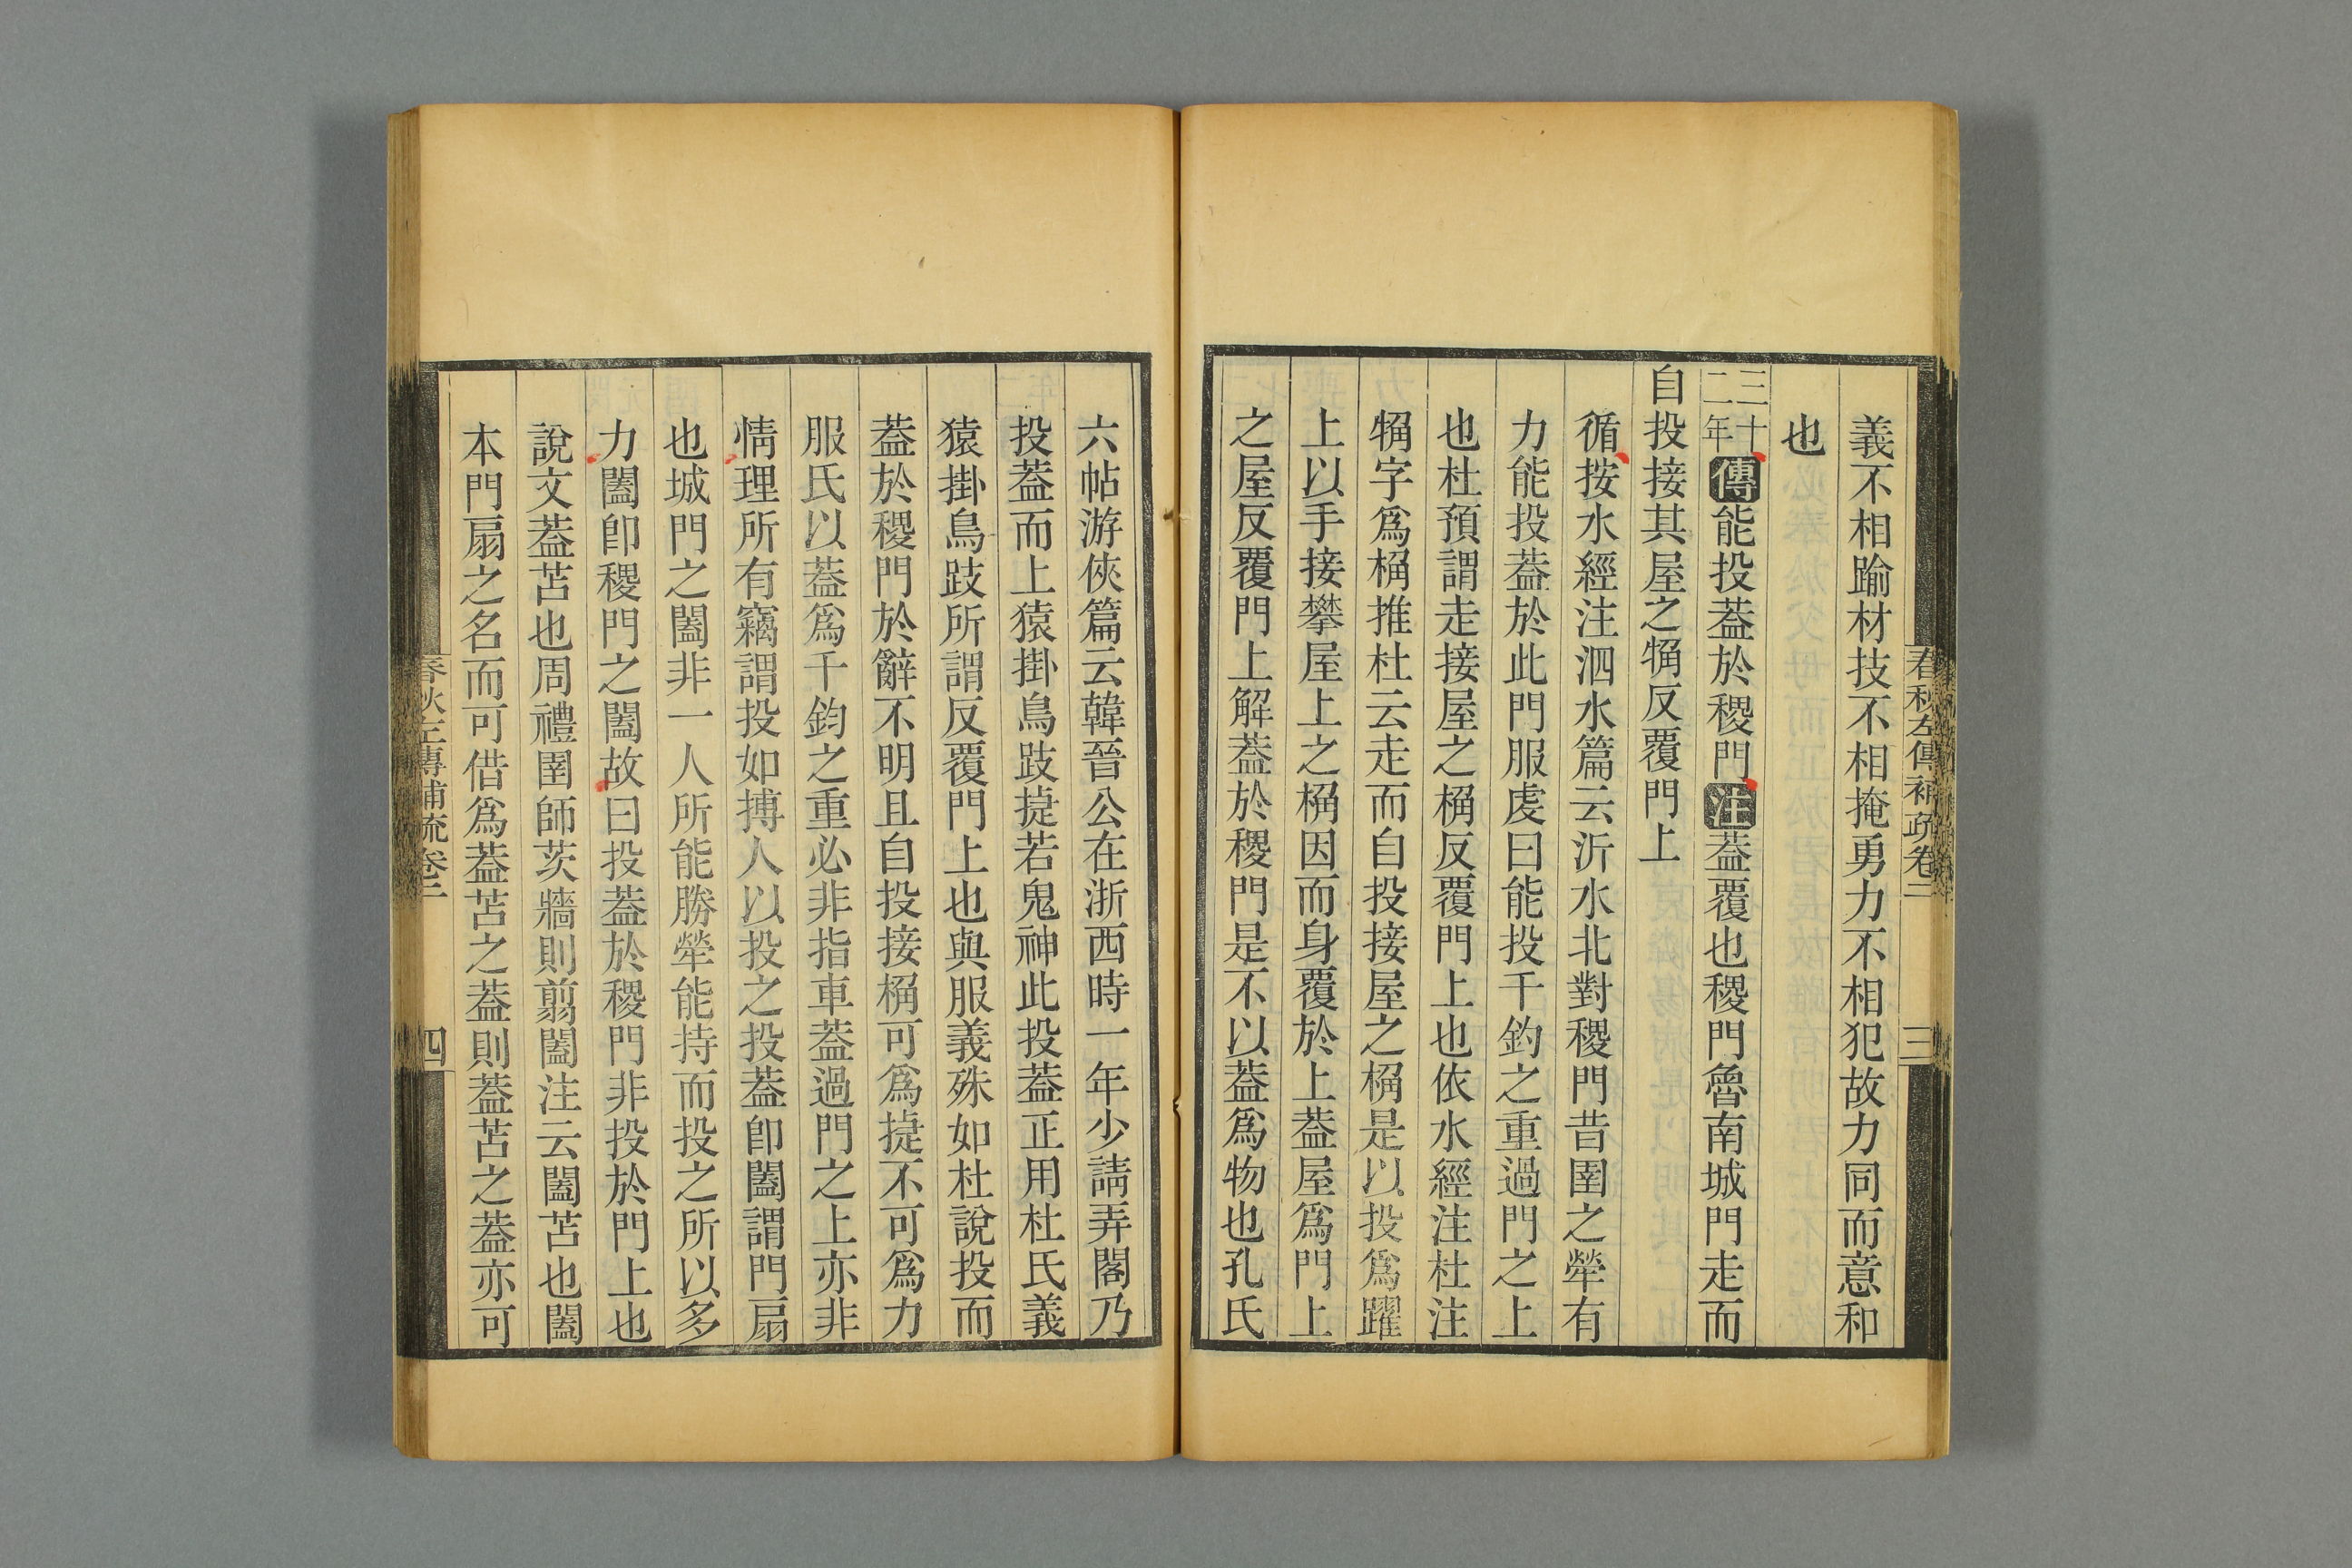 春秋左傳補疏卷二
三
義不相踰材技不相掩勇力不相犯故力同而意和
也
三十二年傳能投葢於稷門注葢覆也稷門魯南城門走而
自投接其屋之桷反覆門上
循按水經注泗水篇云沂水北對稷門昔圉之犖有
力能投葢於此門服虔曰能投千鈞之重過門之上
也杜預謂走接屋之桷反覆門上也依水經注杜注
桷字爲桷推杜云走而自投接屋之桷是以投爲躍
上以手接攀屋上之桷因而身覆於上葢屋爲門上
之屋反覆門上解葢於稷門是不以葢爲物也孔氏
六帖游俠篇云韓晉公在浙西時一年少請弄閣乃
投葢而上猿掛鳥跂捷若鬼神此投葢正用杜氏義
猿掛鳥跂所謂反覆門上也與服義殊如杜說投而
葢於稷門於辭不明且自投接桷可爲捷不可爲力
服氏以葢爲千鈞之重必非指車葢過門之上亦非
情理所有竊謂投如搏人以投之投葢卽闔謂門扇
也城門之闔非一人所能勝犖能持而投之所以多
力闔卽稷門之闔故曰投葢於稷門非投於門上也
說文葢苫也周禮圉師茨牆則翦闔注云闔苫也闔
本門扇之名而可借爲葢苫之葢則葢苫之葢亦可
春秋左傳補疏卷二
四